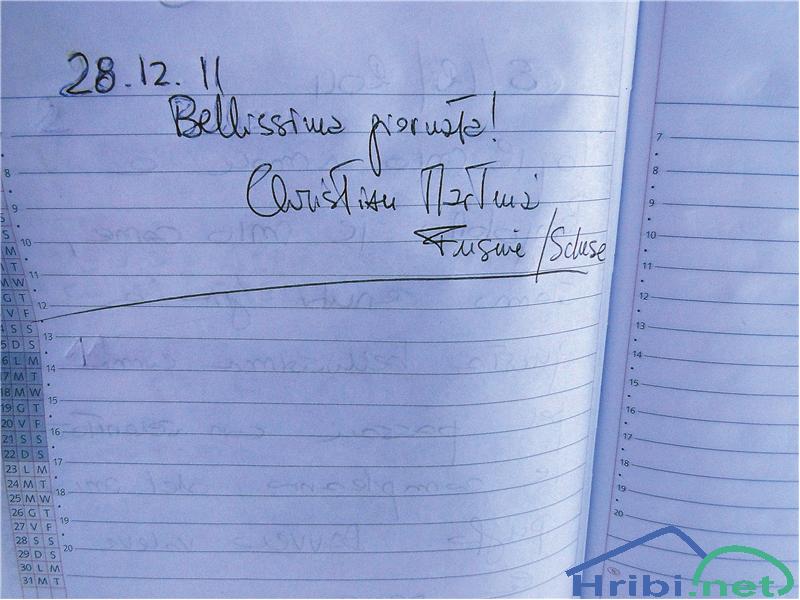 28.12.11
Bellissima giornata!
Christian Martina
Fusine/Scluse
8
9
10
11
12
13
14
15
16
17
18
19
20
M
M T
M W
G T
V F
S S
D S
6 L M
17 M T
18 M W
19 G T
20 V F
21 S S
22 D S
23 L M
24 M T
25 M W
26 G T
27 V F
28 S S
29 D S
30 L M
31 M T
7
8
9
10
11
12
13
14
15
16
17
18
19
20
Hribi.net